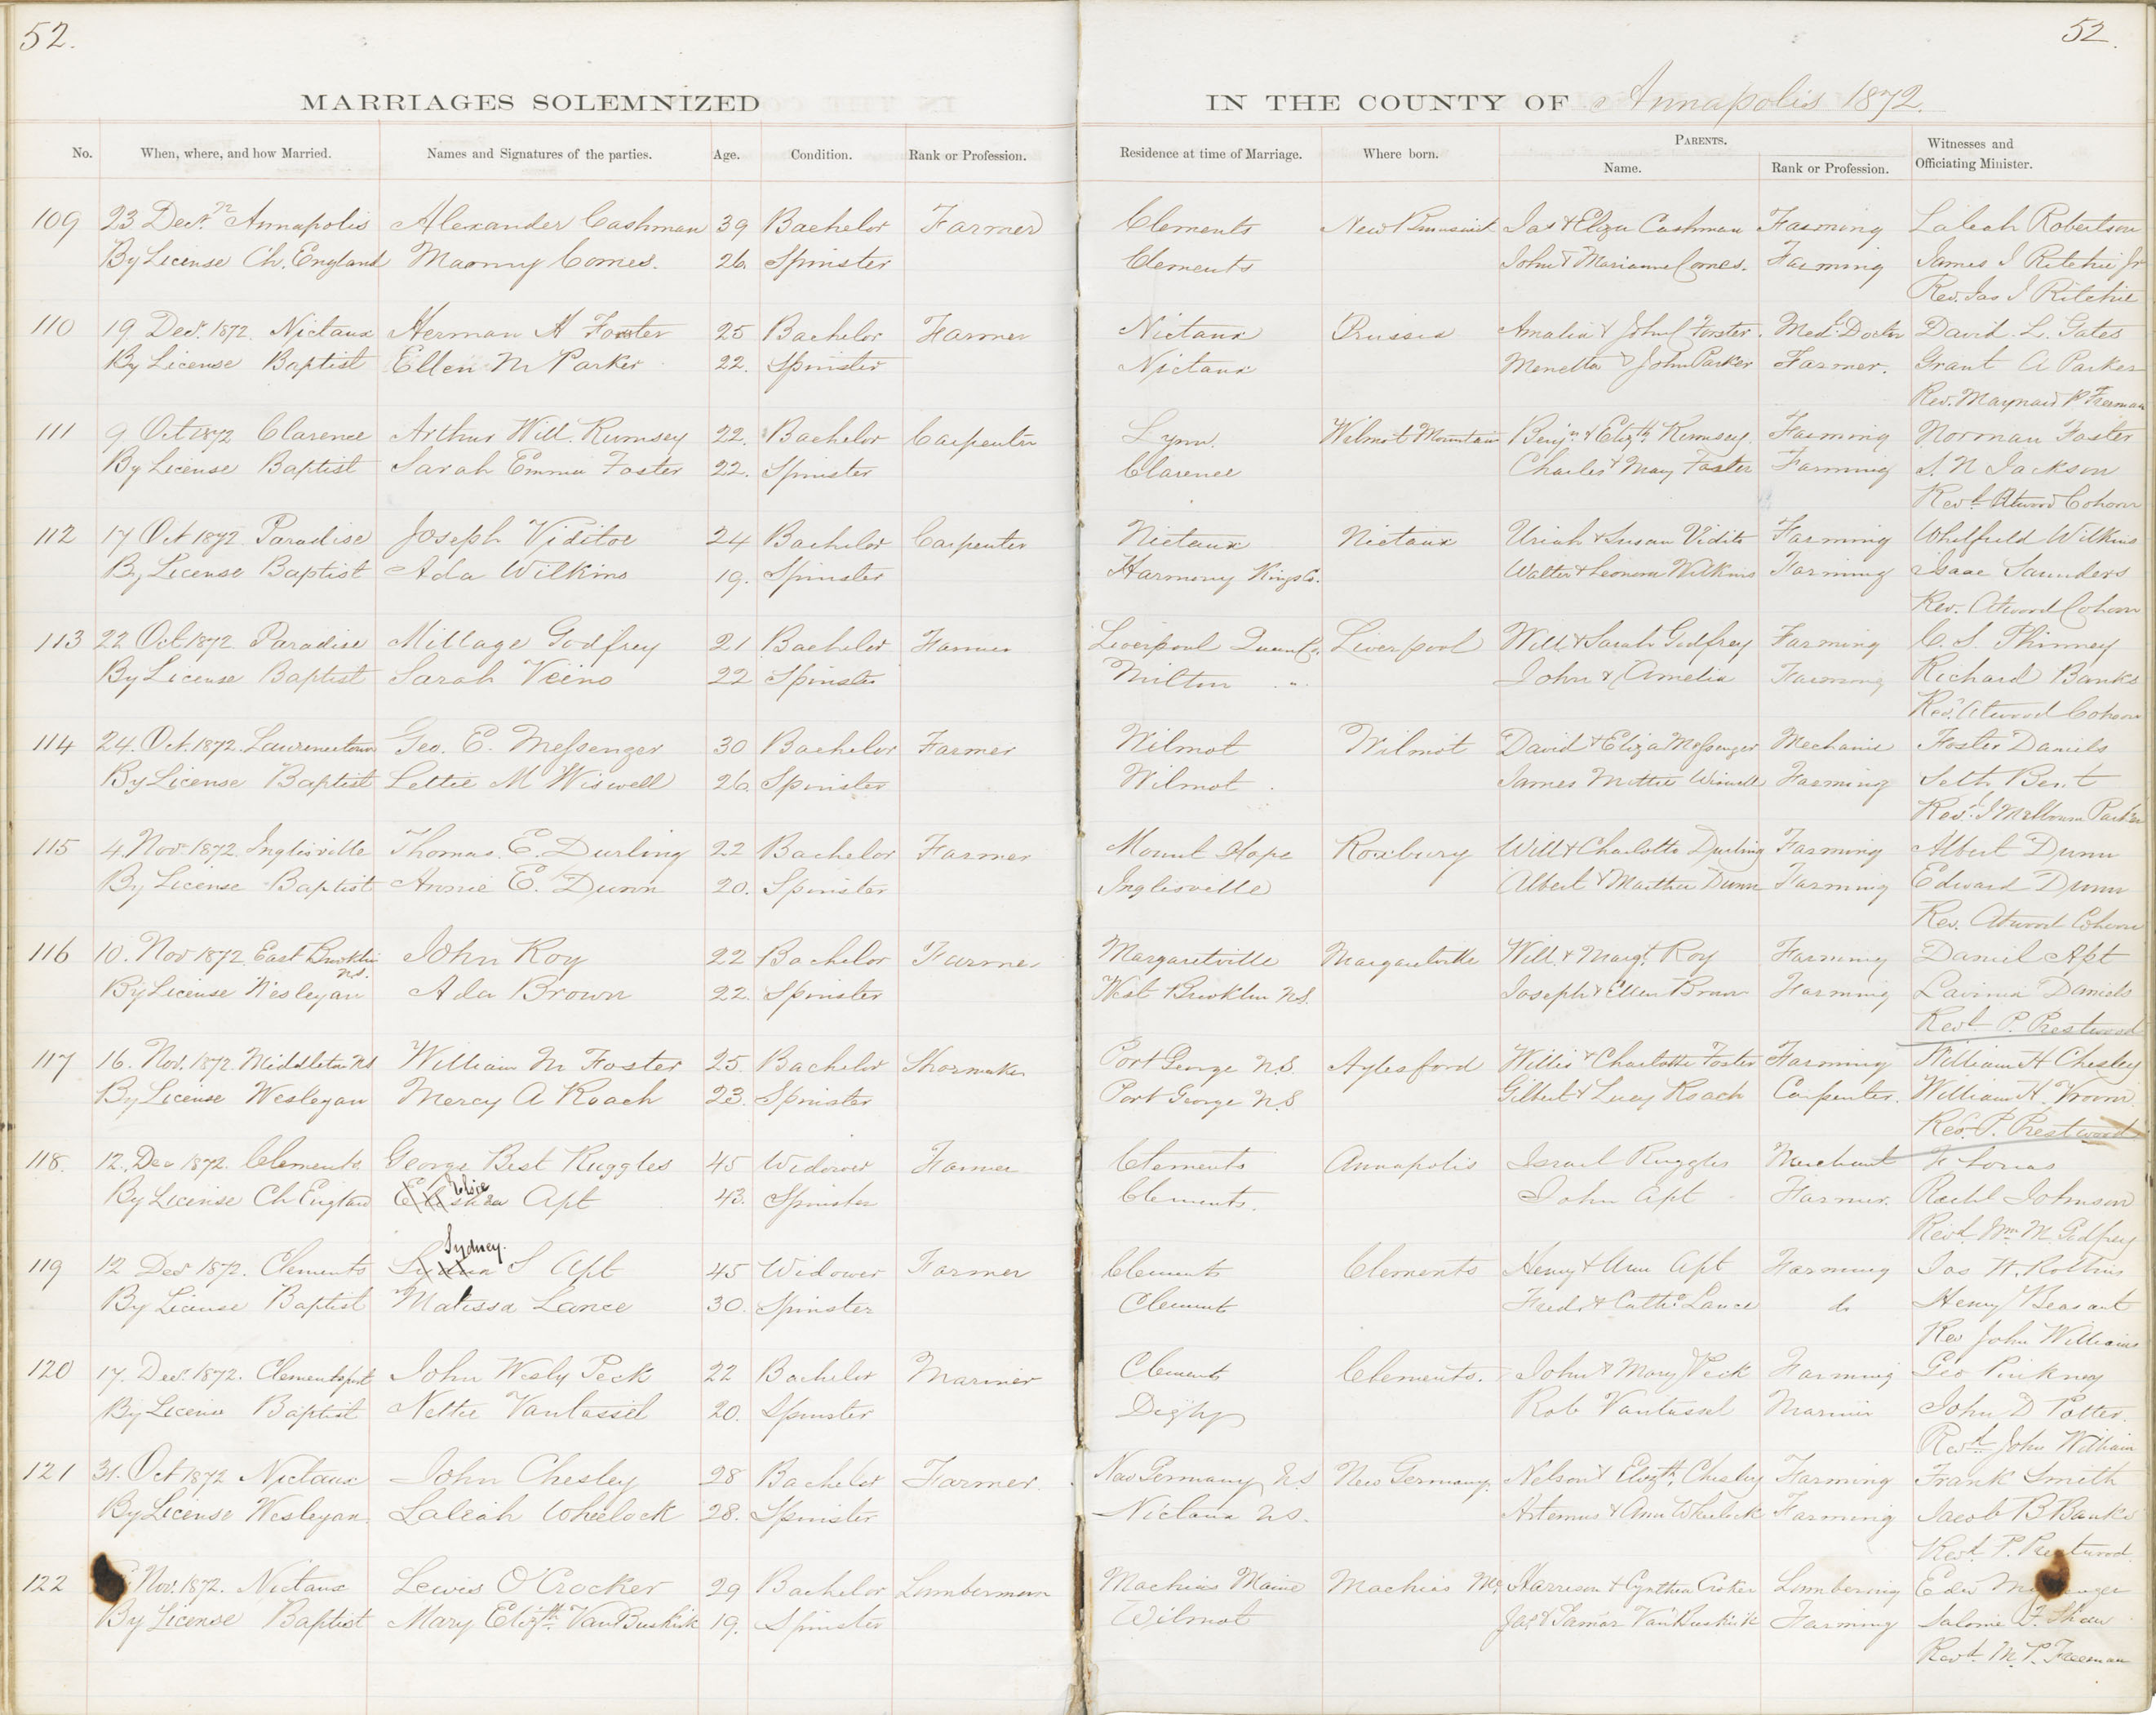 52.
52.
MARRIAGES SOLEMNIZED
IN THE COUNTY OF Annapolis 1872.
No. When, where, and how Married. Names and Signatures of the parties. Age. Condition. Rank or Profession. Residence at time of Marriage. Where born. PARENTS. Name. Rank or Profession. Witnesses and Officiating Minister.
109 23 Decr Annapolis Alexander Cashman 39 Bachelor Farmer Clements New Brunswick Jas & Eliza Cashman Farming Laleah Robertson
By License Ch. England Comes. 26. Spinster Clements John & Marianne Comes. Farming James J Ritchie Jr
Rev. Jas J Ritchie
110 19 Decr. 1872. Nictaux Herman H Forster 25 Bachelor Farmer Nictaux Prussia Amalia & John C Forster. Medl. Doctor David. L. Gates
By License Baptist Ellen M Parker 22. Spinster Nictaux Menetta & John Parker Farmer. Grant A Parker
Rev. Maynard P Freeman
111 9 Oct 1872 Clarence Arthur Will. Rumsey 22. Bachelor Carpenter Lynn. Wilmot Mountain Benjn & Elizth Rumsey. Farming Norman Foster
By License Baptist Sarah Emma Foster 22. Spinster Clarence Charles & Mary Foster Farming S. N Jackson
Revd Atwood Cohoon
112 17 Oct 1872 Paradise Joseph Viditoe 24 Bachelor Carpenter Nictaux Nictaux Uriah & Susan Vidito Farming Whilfield Wilkins
By License Baptist Ada Wilkins 19. Spinster Harmony Kings Co. Walter & Leonora Wilkins Farming Isaac Saunders
Rev. Atwood Cohoon
113 22 Oct 1872. Paradise Millage Godfrey 21 Bachelor Farmer Liverpool Queens Co. Liverpool Will & Sarah Godfrey Farming C. S. Phinney
By License Baptist Sarah Veino 22 Spinster Milton " John & Amelia Farming Richard Banks
Rev. Atwood Cohoon
114 24. Oct. 1872. Lawrencetown Geo. E. Messenger 30 Bachelor Farmer Wilmot Wilmot David & Eliza Messenger Mechanic Foster Daniels
By License Baptist Lettie M Wiswell 26. Spinster Wilmot. James Wiswell Farming Seth Bent
Rev. Parker
115 4. Nov 1872. Inglisville Thomas. E. Durling 22 Bachelor Farmer Mount Hope Roxbury Will & Charlotte Durling Farming Albert Dunn
By License Baptist Annie E. Dunn 20. Spinster Inglisville Albert & Martha Dunn Farming Edward Dunn
Rev. Atwood Cohoon
116 10. Nov 1872. East Brooklin N.S. John Roy 22 Bachelor Farmer Margaretville Margaretville Will. & Margt. Roy Farming Daniel Apt
By License Wesleyan Ada Brown 22. Spinster West Brooklin N.S. Joseph & Ellen Brown Farming Lavinia Daniels
Revd P. Prestwood
117 16. Nov. 1872. Middleton NS William M Foster 25. Bachelor Shoemaker Port George N.S. Aylesford Willis & Charlotte Foster Farming William H Chesley
By License Wesleyan Mercy A Roach 23. Spinster Port George N.S Gilbert & Lucy Roach Carpenter. William H. Vroom
Rev. P. Prestwood
118. 12. Dec 1872. Clements George Best Ruggles 45 Widower Farmer Clements Annapolis Israel Ruggles Merchant
By License Ch England Apt 43. Spinster Clements. John Apt Farmer. Rachl Johnson
Revd. Wm. M. Godfrey
119 12 Decr 1872. Clements Sydney. S Apt 45 Widower Farmer Clements Clements Henry & Ann Apt Farming Jas H. Rollins
By License Baptist Malissa Lance 30. Spinster Clements Fredk & Cathe. Lance do Henry Beasant
Rev John Williams
120 17. Decr. 1872. Clementsport John Wesly Peck 22 Bachelor Mariner Clements Clements. John & Mary Peck Farming Geo Pinkney
By License Baptist Nettie Vantassel 20. Spinster Digby Rob Vantassel Mariner John D Potter.
Revd. John William
121 31. Oct 1872 Nictaux John Chesley 28 Bachelor Farmer. New Germany N.S. New Germany. Nelson & Elizth. Chesley Farming Frank Smith
By License Wesleyan. Laleah Wheelock 28. Spinster Nictaux N.S. Artemus & Ann Wheelock Farming Jacob B Banks
Revd. P. Prestwood.
122 Nov. 1872. Nictaux Lewis O'Crocker 29 Bachelor Lumberman Machias Maine Machias Me. Harrison & Cynthia Croker Lumbering
By License Baptist Mary Elizth. VanBuskirk 19. Spinster Wilmot Jas & Tamar VanBuskirk Farming Salome F. Shaw
Revd. M. P. Freeman